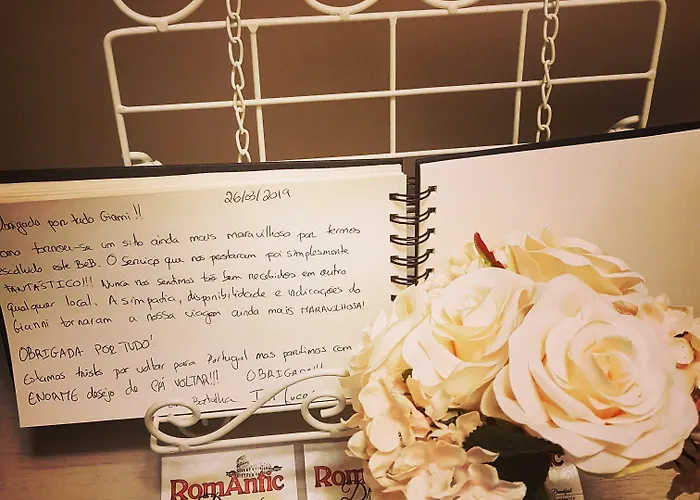 26/03/2019
Obrigada por tudo Gianni!!
Roma tornou-se um sitio ainda mais maravilhoso por termos
escolhido este B&B. O serviço que nos prestaram foi simplesmente
FANTÁSTICO!!! Nunca nos sentimos tão bem recebidos em outro
qualquer local. A simpatia, disponibilidade e indicações do
Gianni tornaram a nossa viagem ainda mais MARAVILHOSA!
OBRIGADA POR TUDO!
Estamos tristes por voltar para Portugal mas partimos com
ENORME desejo de CÁ VOLTAR!!! OBRIGADA!!!
Batalha
RomAntic
Rom